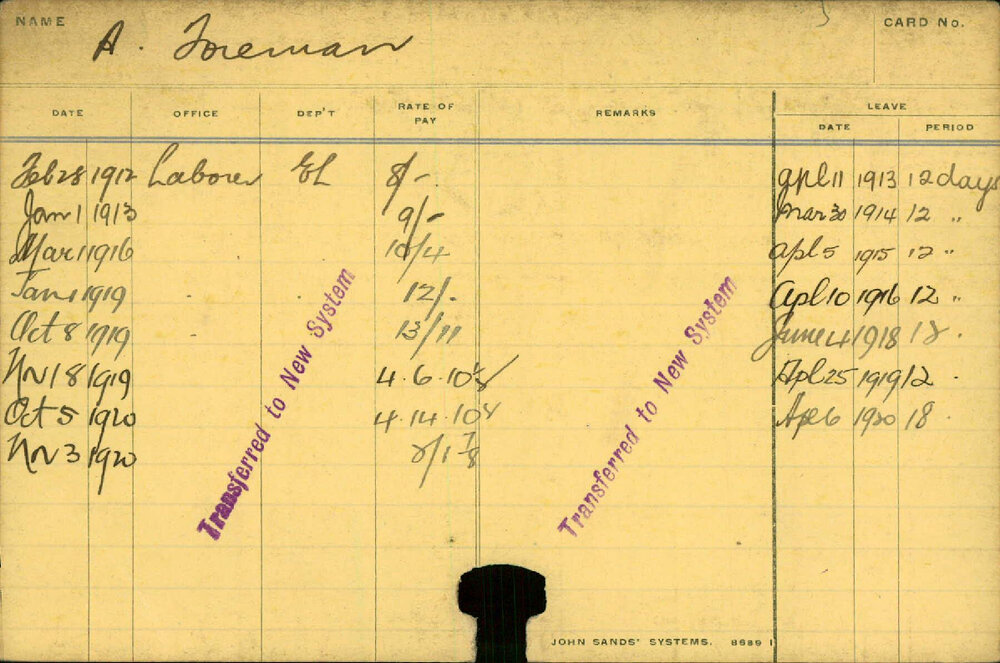 NAME A. Foreman CARD No.
DATE OFFICE DEP'T RATE OF PAY REMARKS LEAVE
DATE PERIOD
Feb 28 1912 Laborer EL 8/- Apl 11 1913 12 days
Jan 1 1913 9/- Mar 30 1914 12 "
Mar 1 1916 10/4 Apl 5 1915 12 "
Jan 1 1919 12/- Apl 10 1916 12 "
Oct 8 1919 13/11 June 4 1918 12 "
Nov 18 1919 4.6.10 Apl 25 1919 12 "
Oct 5 1920 4.14.10 Apl 6 1920 18 "
Nov 3 1920 2/1 7/8
Transferred to New System
Transferred to New System
JOHN SANDS' SYSTEMS. 8689